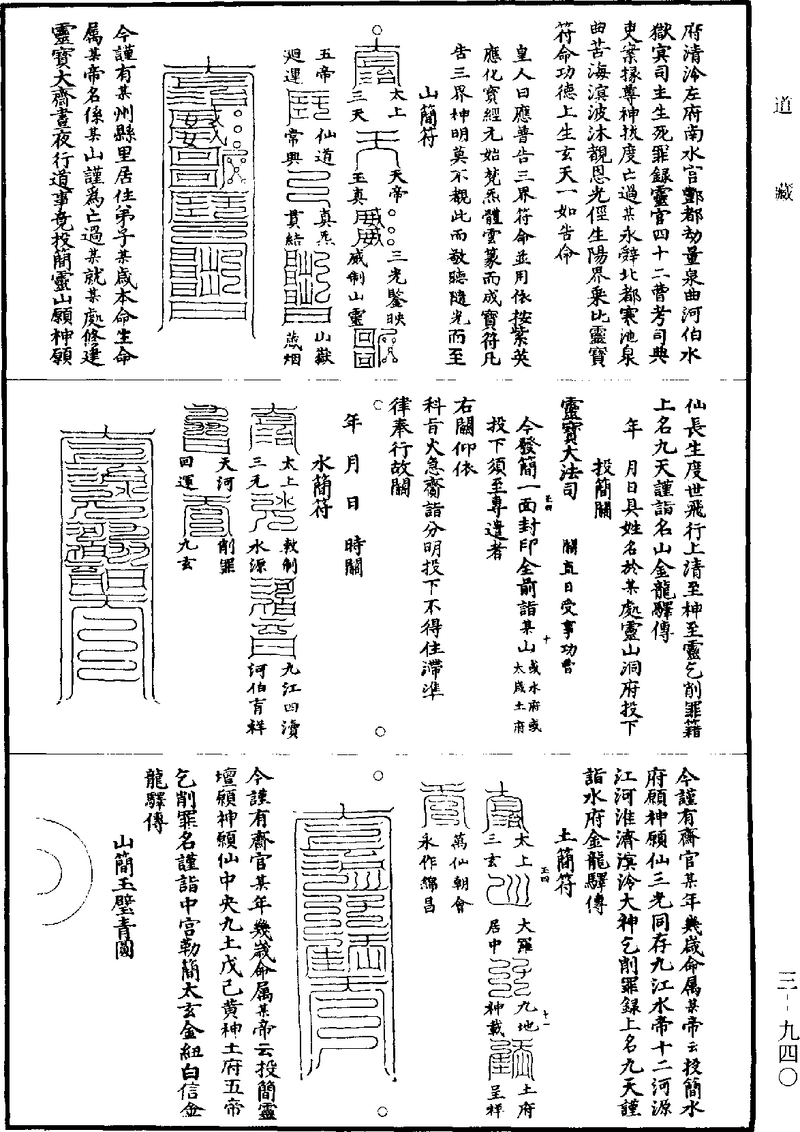 道藏
府清泠左府南水官酆都劫量泉曲河伯水
獄㝠司主生死罪録靈官四十二曹考司典
吏案掾尊神拔度亡過某永辭北都寒池泉
曲苦海溟波沐觀恩光徑生陽界乘此靈寳
符命功德上生玄天一如告命
皇人曰應普告三界符命並用依按紫英
應化寳經元始梵炁體雲篆而成寳符凡
告三界神明莫不觀此而敬聽隨光而至
山簡符
太上三天
天帝玉真
三光鑒映
威制山靈
五帝廻運
仙道常興
真炁貫結
山嶽藏烟
今謹有某州縣里居住弟子某歲本命生命
屬某帝名係某山謹爲亡過某就某處修建
靈寳大齋晝夜行道事竟投簡靈山願神願
仙長生度世飛行上清至神至靈乞削罪籍
上名九天謹詣名山金龍驛傳
投簡關
年月日具姓名於某處靈山洞府投下
靈寳大法司　關直日受事功曹
今發簡一面封印全前詣某山或水府或太歲土府
投下須至專遣者
右關仰依
科旨火急齎詣分明投下不得住滯準
律奉行故關
年月日時關
水簡符
太上三元
敕制水源
九江四瀆
河伯育祥
天河回運
削罪九玄
今謹有齋官某年幾歲命属某帝云投簡水
府願神願仙三光同存九江水帝十二河源
江河淮濟溟泠大神乞削罪録上名九天謹
詣水府金龍驛傳
土簡符
太上三玄
大羅居中
九地神載
土府呈祥
萬仙朝會
永作綿昌
今謹有齋官某年幾歲命属某帝云投簡靈
壇願神願仙中央九土戊己黄神土府五帝
乞削罪名謹詣中宫勒簡太玄金紐白信金
龍驛傳
山簡玉璧青圓
三-九四〇